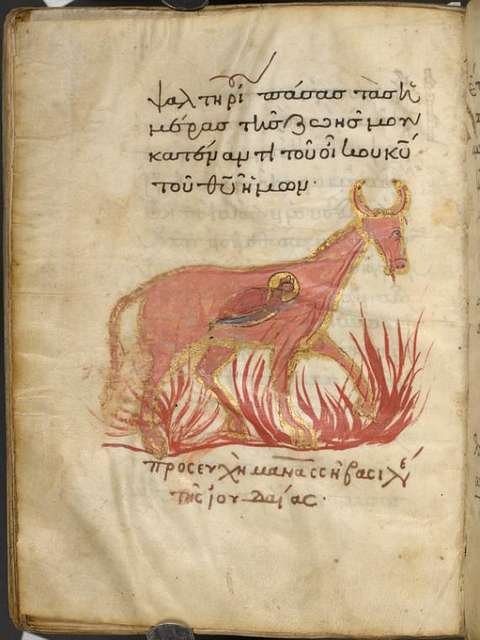 ψαλτηρί πάσας τὰς ἡ
μέρας τῆς ζωῆς μου
κατέναντι τοῦ οἴκου κῦ
τοῦ θῦ ἡμῶν·
προσευχὴ μανασσῆ βασιλέ
τῆς ἰουδαίας·